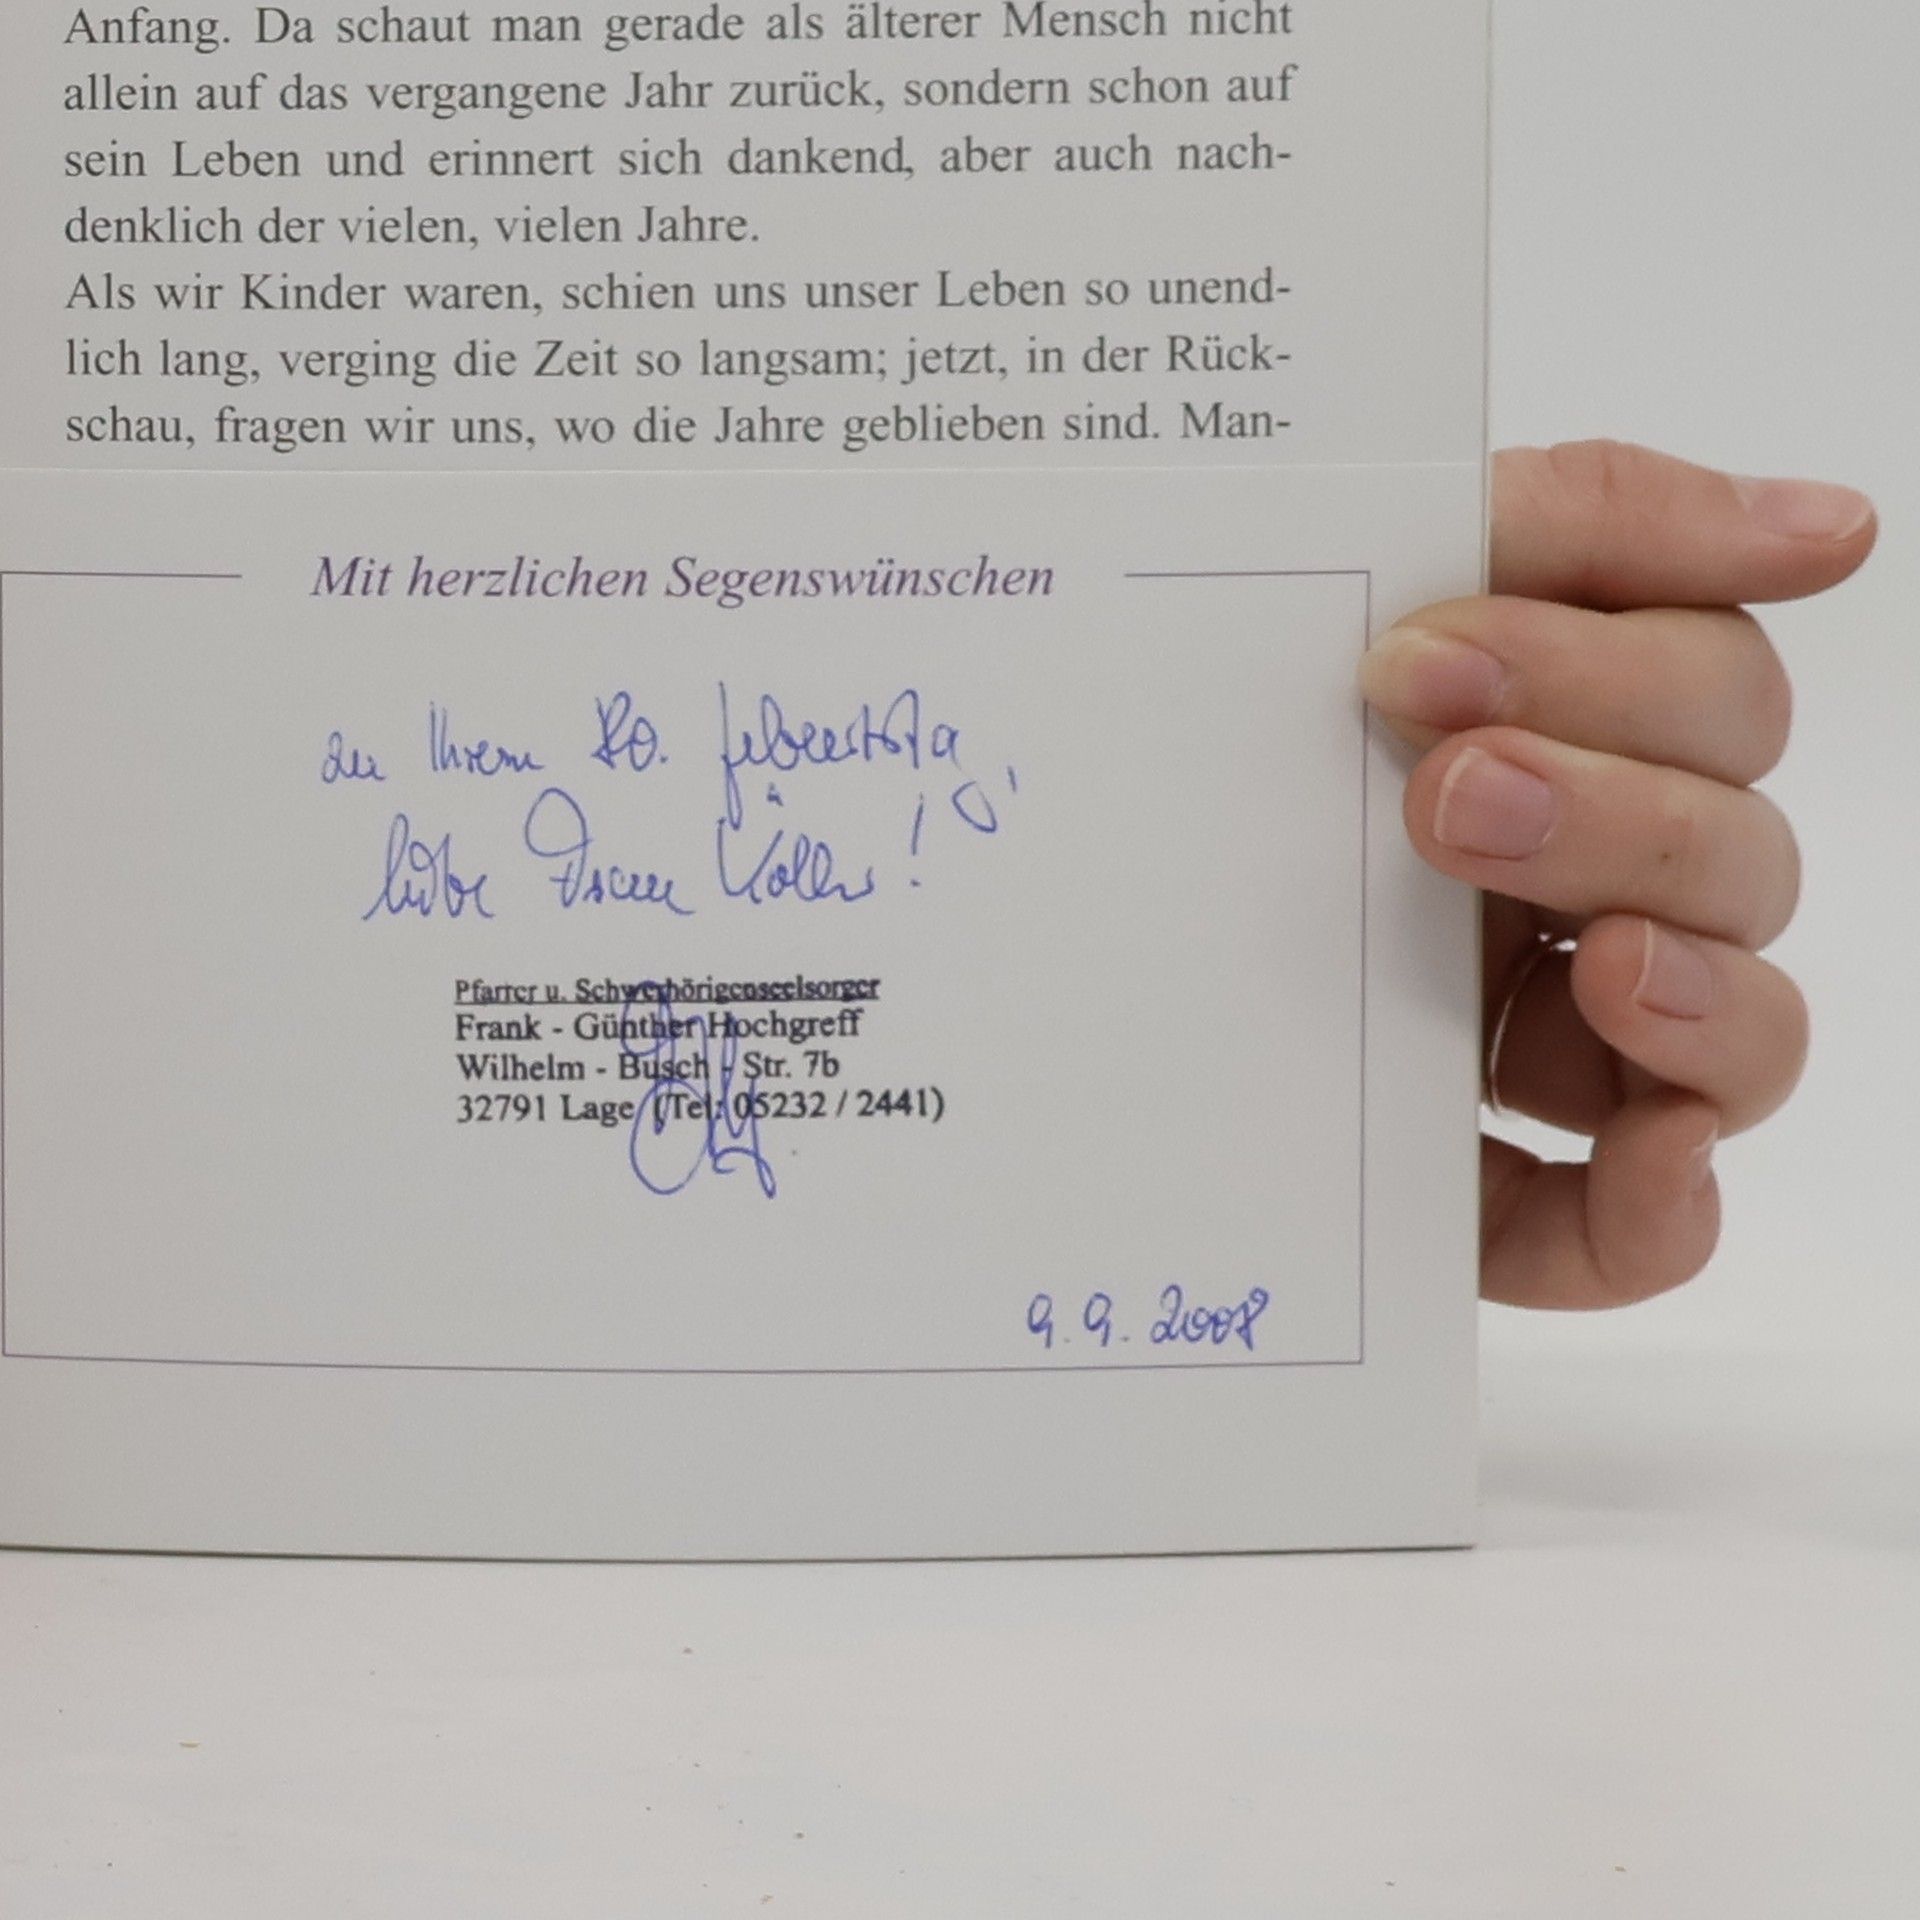 Anfang. Da schaut man gerade als älterer Mensch nicht
allein auf das vergangene Jahr zurück, sondern schon auf
sein Leben und erinnert sich dankend, aber auch nach-
denklich der vielen, vielen Jahre.
Als wir Kinder waren, schien uns unser Leben so unend-
lich lang, verging die Zeit so langsam; jetzt, in der Rück-
schau, fragen wir uns, wo die Jahre geblieben sind. Man-
Mit herzlichen Segenswünschen
zu Ihrem 80. Geburtstag,
liebe Frau !
Pfarrer u. Schwerhörigenseelsorger
Frank - Günther Hochgreff
Wilhelm - Busch - Str. 7b
32791 Lage (Tel: 05232 / 2441)
9. 9. 2008